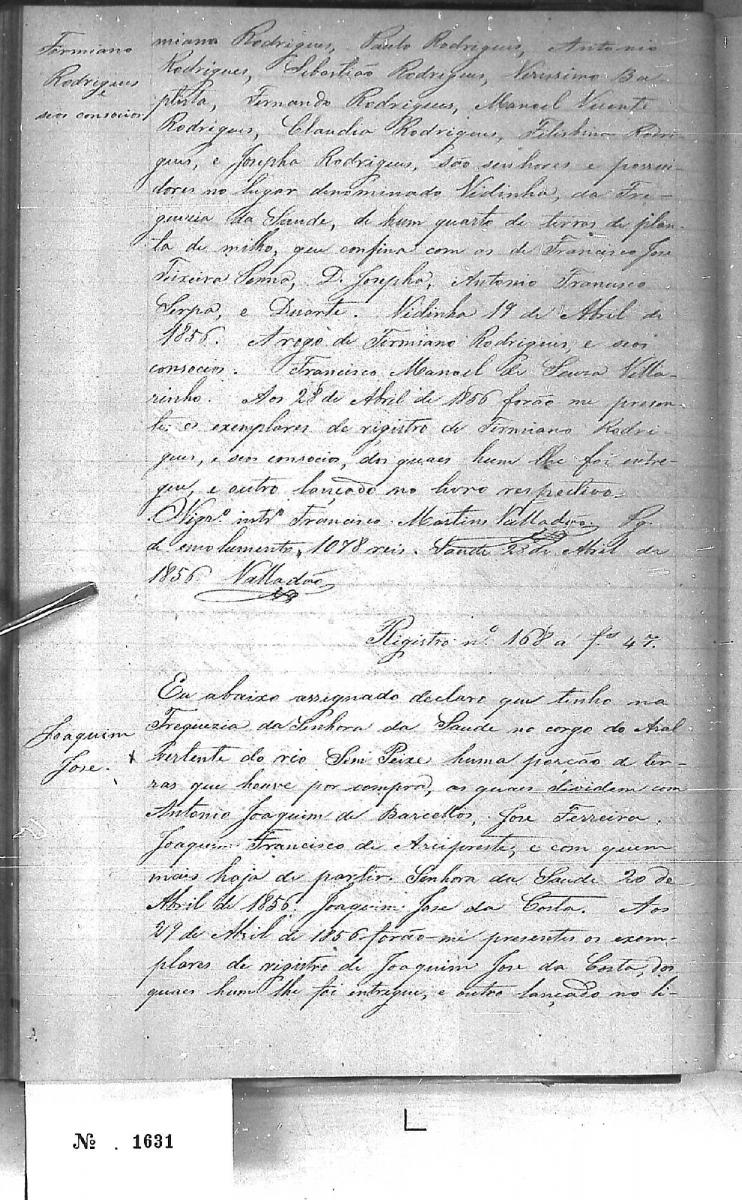 Firmiano
Rodrigues
e
seos consocios
miana Rodrigues, Paulo Rodrigues, Antonio
Rodrigues, Sebastião Rodrigues, Verissimo Ba-
ptista, Fernando Rodrigues, Manoel Vicente
Rodrigues, Claudia Rodrigues, Rodri-
gues, e Josepha Rodrigues, são senhores e possui-
dores no lugar denominado Vidinha, da Fre-
guezia da Saude, de hum quarto de terras de plan-
ta de milho, que confina com os de Francisco Jose
Teixeira Penna, D. Josepha, Antonio Francisco
Serpa, e Duarte. Vidinha 19 de Abril de
1856. A rogo de Firmiano Rodrigues, e seos
consocios. Francisco Manoel de Souza Villa-
rinho. Aos 28 de Abril de 1856 forão me presen-
te os exemplares de registro de Firmiano Rodri
gues, e seos consocios, dos quaes hum lhe foi entre-
gue, e outro lançado no livro respectivo.
O Vigrº intrº Francisco Martins Valladão Pg.
de emolumentos 1078 reis. Saude 28 de Abril de
1856 Valladão
Registro nº 168 a fs 47.
Joaquim
Jose.
Eu abaixo assignado declaro que tenho na
Freguezia da Senhora da Saude no corgo do
vertente do rio Sem Peixe huma porção de ter-
ras que houve por compra, as quais dividem com
Antonio Joaquim de Barcellos, Jose Ferreira,
Joaquim Francisco de Arcipreste, e com quem
mais haja de partir. Senhora da Saude 20 de
Abril de 1856. Joaquim Jose da Costa. Aos
29 de Abril de 1856 forão-me presentes os exem-
plares de registro de Joaquim Jose da Costa, dos
quaes hum lhe foi entregue, e outro lançado no li-
№ . 1631